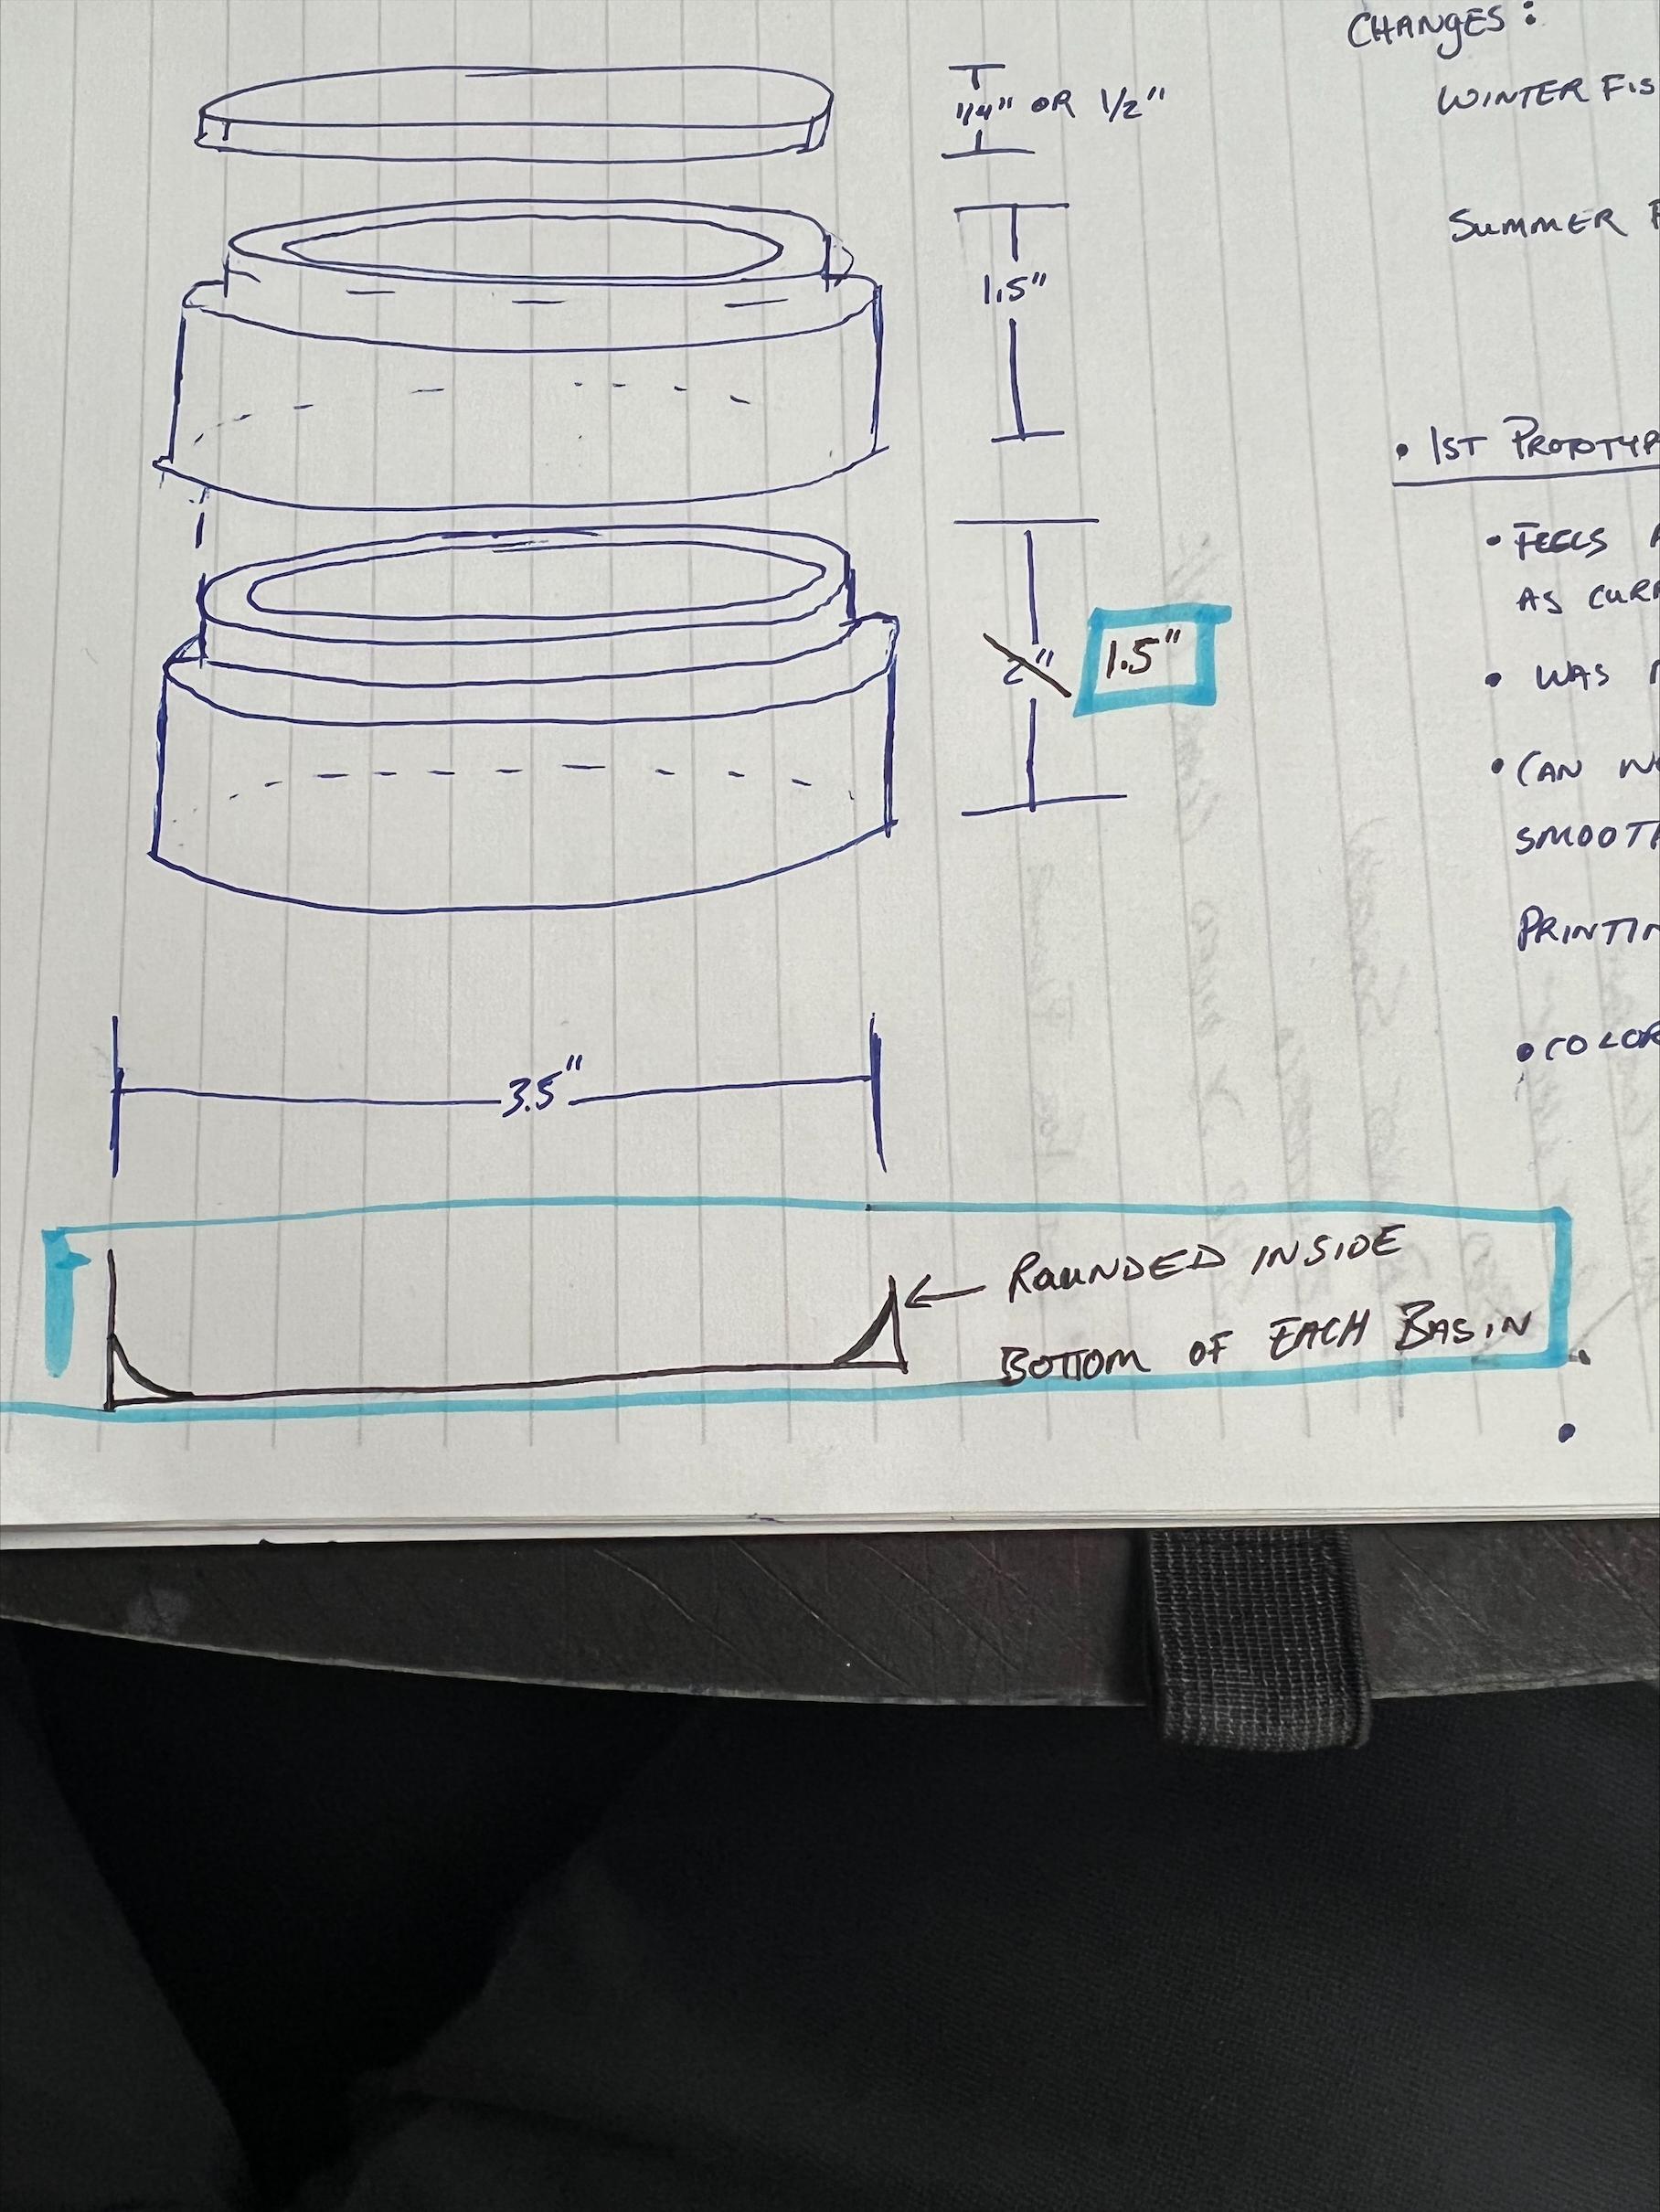 1/4" OR 1/2"
1.5"
2" 1.5"
3.5"
ROUNDED INSIDE
BOTTOM OF EACH BASIN
CHANGES:
WINTER FIS
SUMMER
• 1ST PROTOTYP
• FEELS
AS CURR
• WAS
• CAN
SMOOTH
PRINTIN
• COLOR